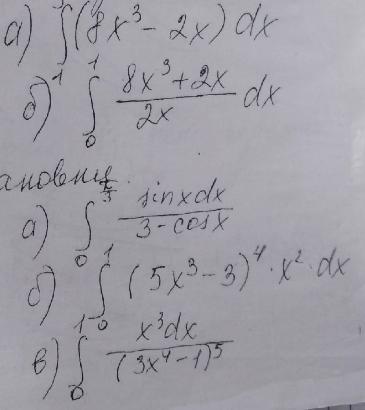 а) ∫₋₁ (8x³ - 2x) dx
б) ∫₀¹ (8x³ + 2x)/(2x) dx
ановения
а) ∫₀^(π/3) (sin x dx)/(3 - cos x)
б) ∫₀¹ (5x³ - 3)⁴ · x² · dx
в) ∫₀¹ (x³ dx)/(3x⁴ - 1)⁵